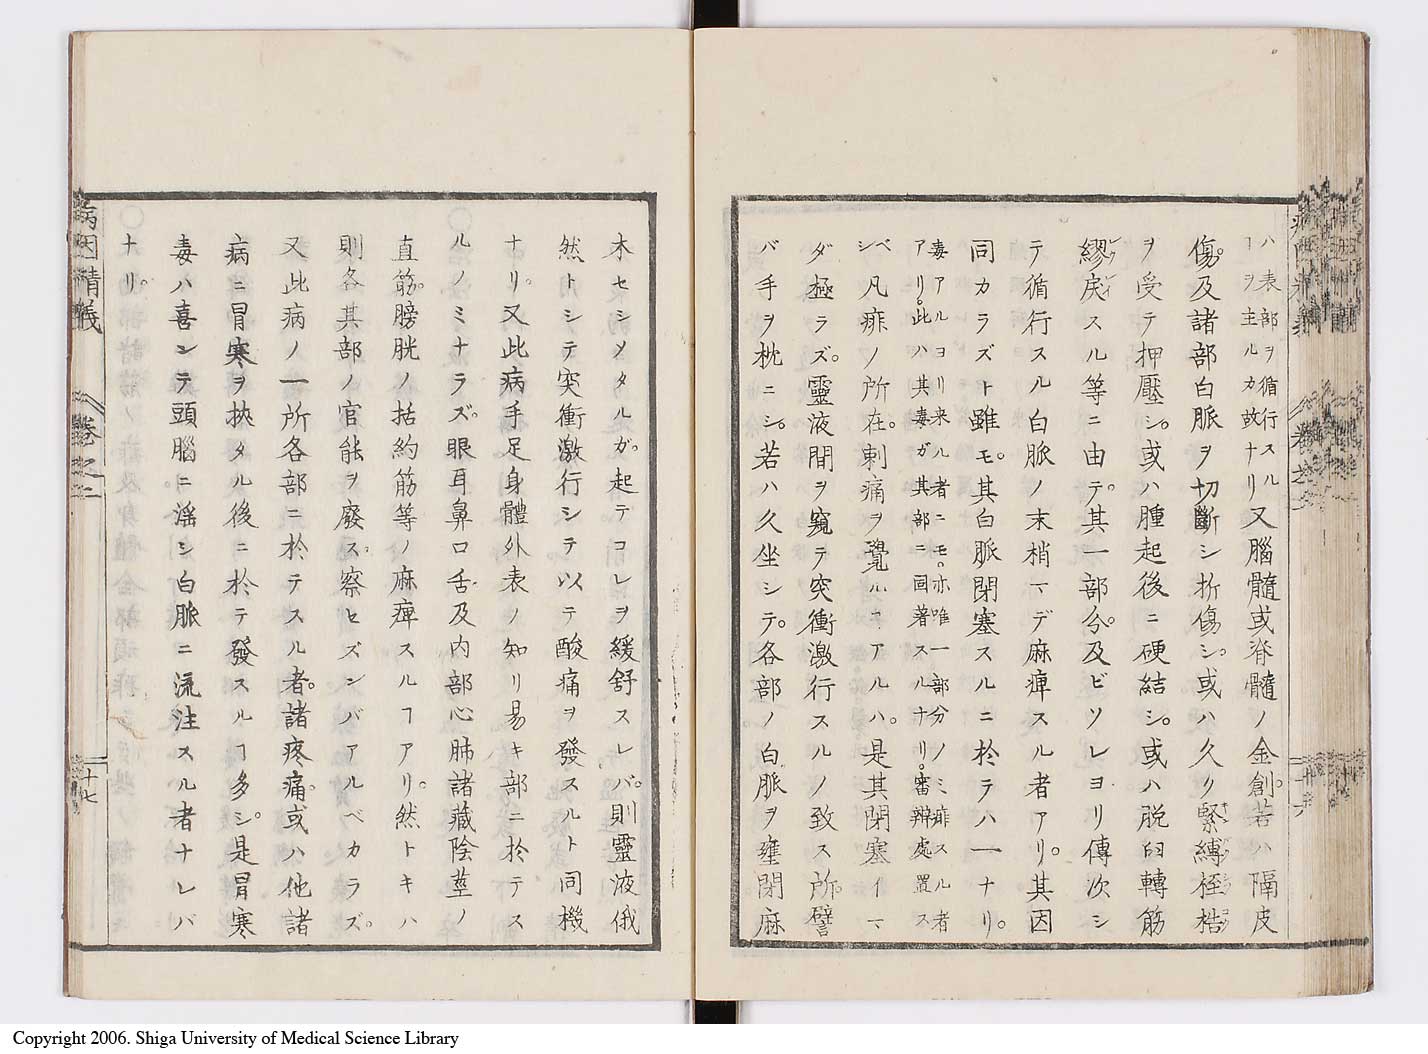 ハ表部ヲ循行スル
ヿヲ主ルカ故ナリ
又腦髓或脊髓ノ金創。若ハ隔皮
傷。及諸部白脈ヲ切斷シ折傷シ。或ハ久ク緊縛桎梏
ヲ受テ押壓シ。或ハ腫起後ニ硬結シ。或ハ脱臼轉筋
繆戻スル等ニ由テ。其一部分。及ビソレヨリ傳次シ
テ循行スル白脈ノ末梢マデ麻痺スル者アリ。其因
同カラズト雖モ。其白脈閉塞スルニ於テハ一ナリ。
毒アルヨリ来ル者ニモ。亦唯一部分ノミ痱スル者
アリ。此ハ其毒ガ其部ニ固著スルナリ。審辨處置ス
ベシ
凡痱ノ所在。刺痛ヲ覺ルヿアルハ。是其閉塞イマ
ダ極ラズ。靈液間ヲ窺テ突衝激行スルノ致ス所。譬
バ手ヲ枕ニシ。若ハ久坐シテ。各部ノ白脈ヲ壅閉麻
木セシメタルガ。起テコレヲ緩舒スレバ。則靈液俄
然トシテ突衝激行シテ以テ酸痛ヲ發スルト同機
ナリ。又此病手足身體外表ノ知リ易キ部ニ於テス
ルノミナラズ。眼耳鼻口舌及内部心肺諸藏陰莖ノ
直筋。膀胱ノ括約筋等ノ麻痺スルヿアリ。然トキハ
則各其部ノ官能ヲ廢ス。察セズンバアルベカラズ。
又此病ノ一所各部ニ於テスル者。諸疼痛。或ハ他諸
病ニ冒寒ヲ挾タル後ニ於テ發スルヿ多シ。是冒寒
毒ハ喜ンテ頭腦ニ淫シ白脈ニ流注スル者ナレバ
ナリ。
病因精義
卷之二
十七
Copyright 2006. Shiga University of Medical Science Library